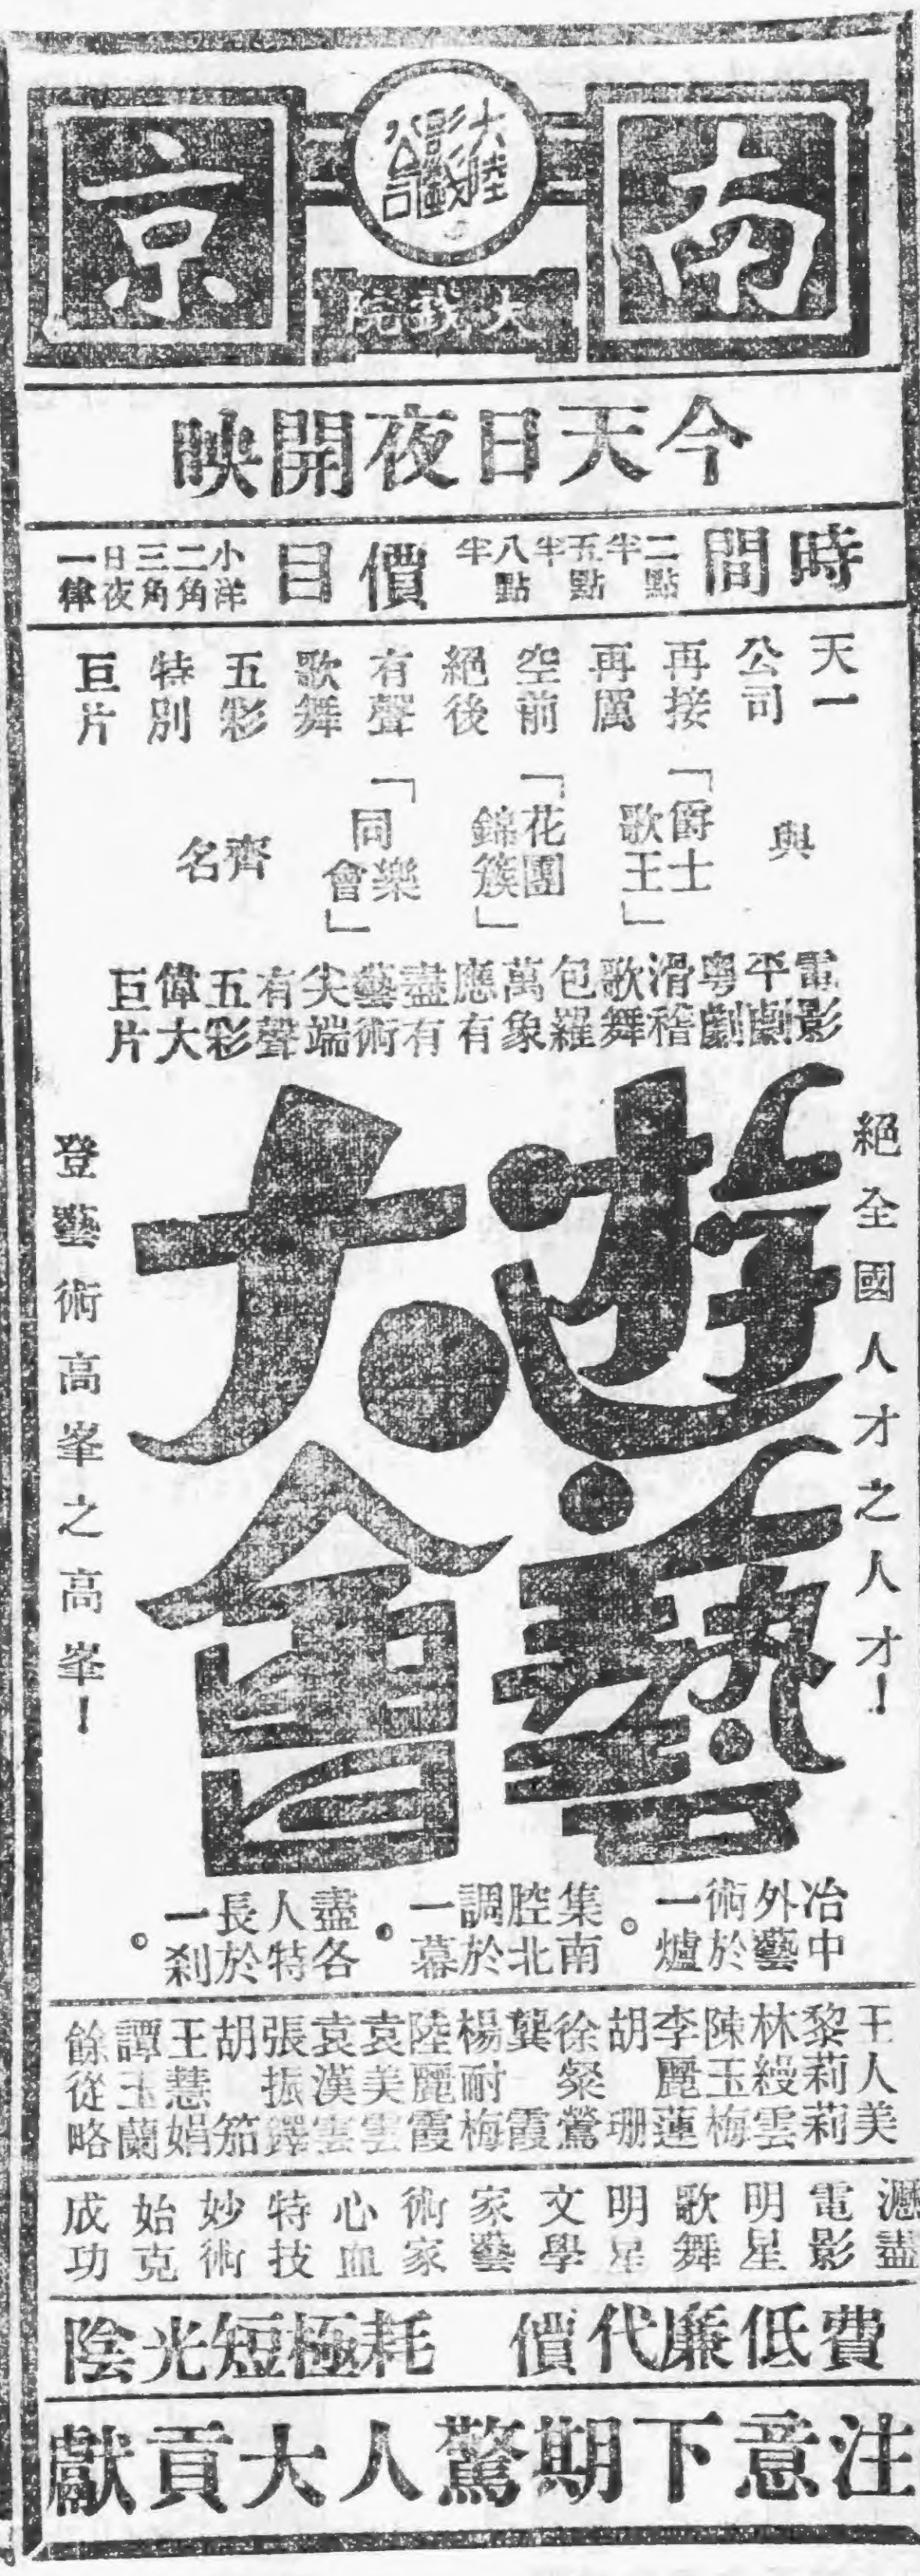 南京
大陸影戲公司
大戲院
今天日夜開映
時間 二點半 五點半 八點半 價目 小洋二角三角日夜一律
天一公司再接再厲空前絕後有聲歌舞五彩特別巨片
與「爵士歌王」「花團錦簇」「同樂會」齊名
電影平劇粵劇滑稽歌舞包羅萬象應有盡有藝術尖端有聲五彩偉大巨片
絕全國人才之人才！
遊藝大會
登藝術高峯之高峯！
冶中外藝術於一爐。集南腔北調於一幕。盡各人特長於一剎。
王人美
黎莉莉
林縵雲
陳玉梅
李麗蓮
胡珊
徐粲鶯
龔霞
楊耐梅
陸麗霞
袁美雲
袁漢雲
張振鐸
胡笳
王慧娟
譚玉蘭
餘從略
瀝盡電影明星歌舞明星文學家藝術家心血特技妙術始克成功
費低廉代價 耗極短光陰
注意下期驚人大貢獻